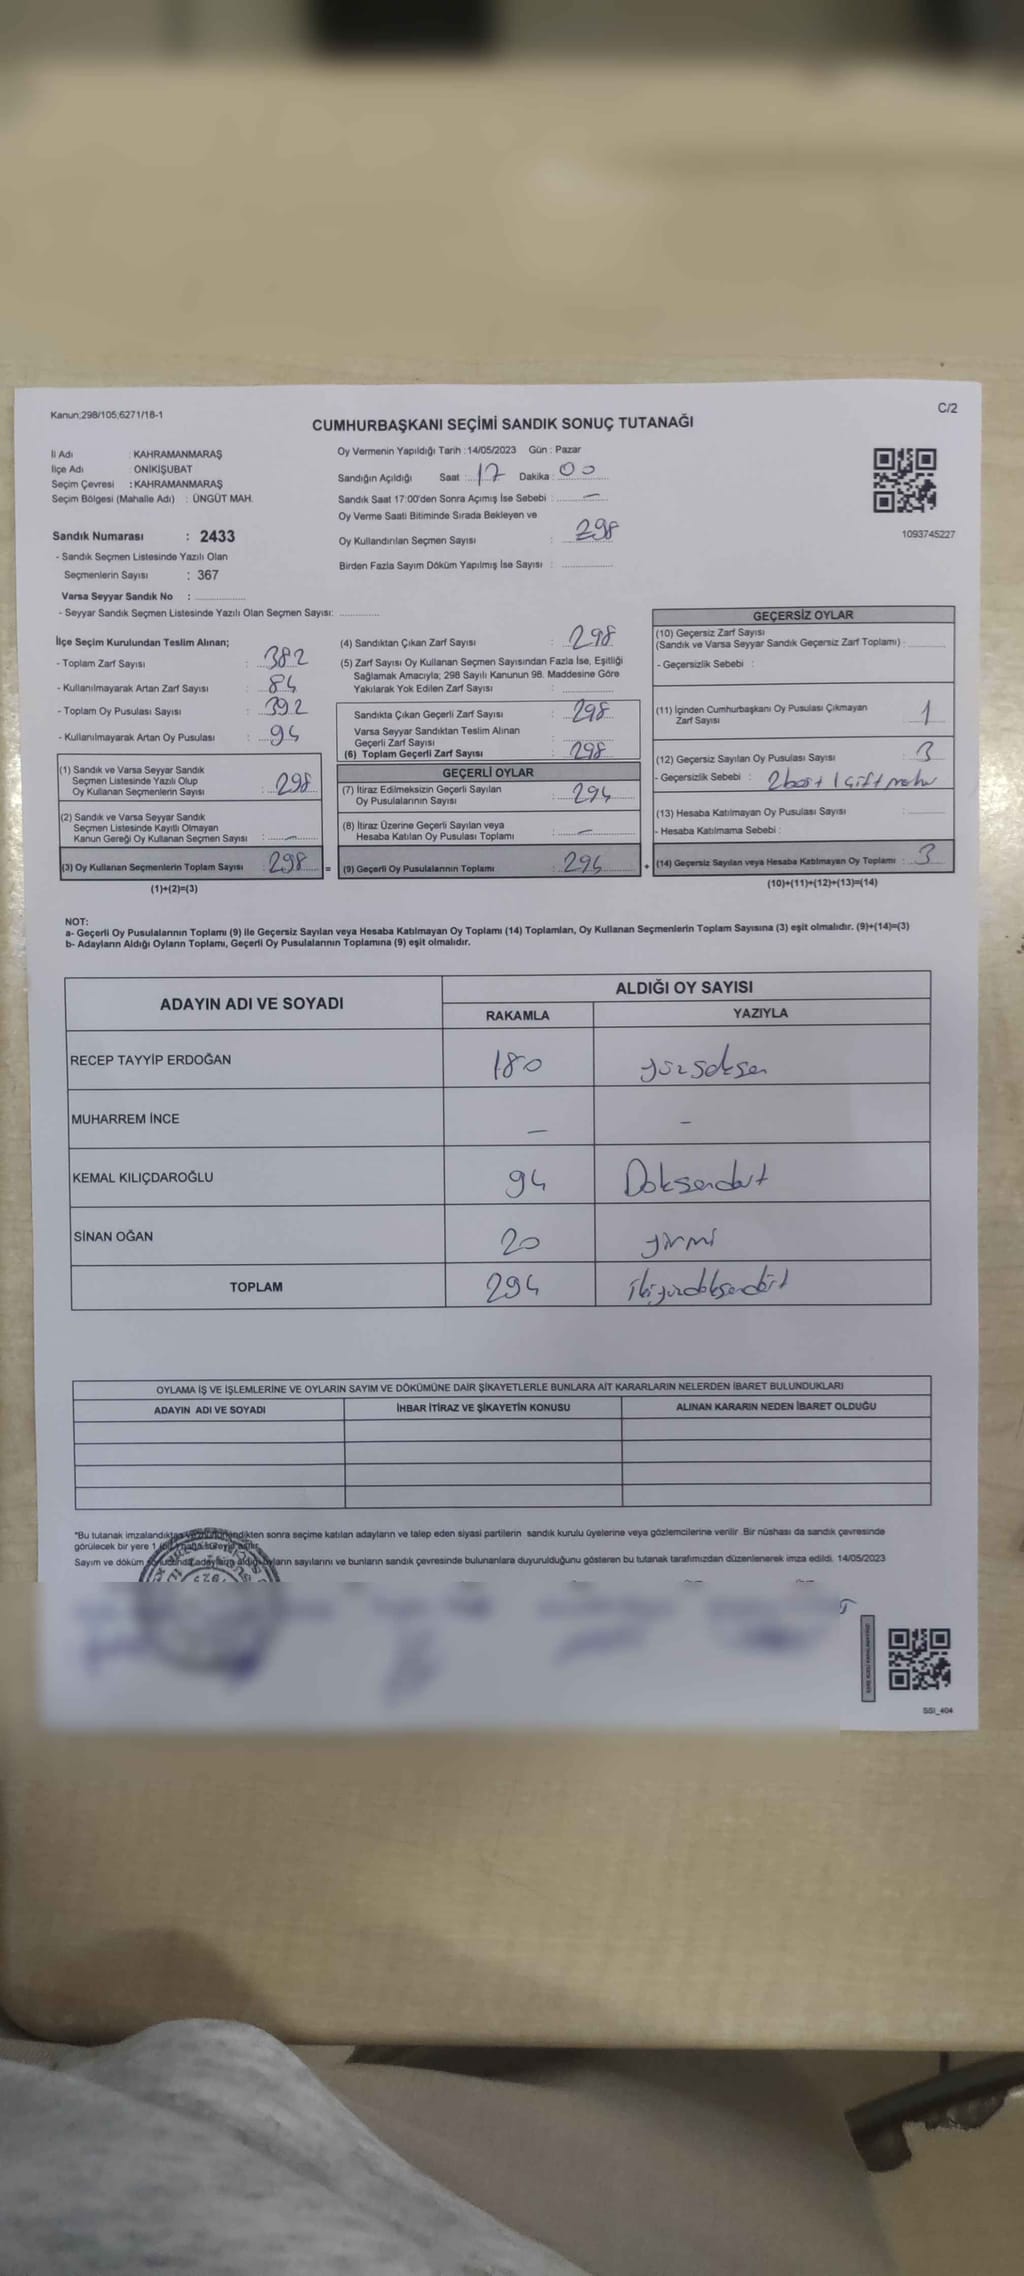 Kanun;298/105;6271/18-1
C/2
CUMHURBAŞKANI SEÇİMİ SANDIK SONUÇ TUTANAĞI
İl Adı : KAHRAMANMARAŞ
İlçe Adı : ONİKİŞUBAT
Seçim Çevresi : KAHRAMANMARAŞ
Seçim Bölgesi (Mahalle Adı) : ÜNGÜT MAH.
Oy Vermenin Yapıldığı Tarih : 14/05/2023 Gün : Pazar
Sandığın Açıldığı Saat : 17 Dakika : 00
Sandık Saat 17:00'den Sonra Açımış İse Sebebi : —
Oy Verme Saati Bitiminde Sırada Bekleyen ve
Oy Kullandırılan Seçmen Sayısı : 298
Birden Fazla Sayım Döküm Yapılmış İse Sayısı :
1093745227
Sandık Numarası : 2433
- Sandık Seçmen Listesinde Yazılı Olan
Seçmenlerin Sayısı : 367
Varsa Seyyar Sandık No :
- Seyyar Sandık Seçmen Listesinde Yazılı Olan Seçmen Sayısı:
İlçe Seçim Kurulundan Teslim Alınan;
- Toplam Zarf Sayısı : 382
- Kullanılmayarak Artan Zarf Sayısı : 84
- Toplam Oy Pusulası Sayısı : 392
- Kullanılmayarak Artan Oy Pusulası : 94
(1) Sandık ve Varsa Seyyar Sandık
Seçmen Listesinde Yazılı Olup
Oy Kullanan Seçmenlerin Sayısı : 298
(2) Sandık ve Varsa Seyyar Sandık
Seçmen Listesinde Kayıtlı Olmayan
Kanun Gereği Oy Kullanan Seçmen Sayısı : —
(3) Oy Kullanan Seçmenlerin Toplam Sayısı : 298 =
(1)+(2)=(3)
(4) Sandıktan Çıkan Zarf Sayısı : 298
(5) Zarf Sayısı Oy Kullanan Seçmen Sayısından Fazla İse, Eşitliği
Sağlamak Amacıyla; 298 Sayılı Kanunun 98. Maddesine Göre
Yakılarak Yok Edilen Zarf Sayısı :
Sandıkta Çıkan Geçerli Zarf Sayısı : 298
Varsa Seyyar Sandıktan Teslim Alınan
Geçerli Zarf Sayısı :
(6) Toplam Geçerli Zarf Sayısı : 298
GEÇERLİ OYLAR
(7) İtiraz Edilmeksizin Geçerli Sayılan
Oy Pusulalarının Sayısı : 294
(8) İtiraz Üzerine Geçerli Sayılan veya
Hesaba Katılan Oy Pusulası Toplamı : —
(9) Geçerli Oy Pusulalarının Toplamı : 294 +
GEÇERSİZ OYLAR
(10) Geçersiz Zarf Sayısı
(Sandık ve Varsa Seyyar Sandık Geçersiz Zarf Toplamı) :
- Geçersizlik Sebebi :
(11) İçinden Cumhurbaşkanı Oy Pusulası Çıkmayan
Zarf Sayısı : 1
(12) Geçersiz Sayılan Oy Pusulası Sayısı : 3
- Geçersizlik Sebebi : 2 boş + 1 çift mühür
(13) Hesaba Katılmayan Oy Pusulası Sayısı :
- Hesaba Katılmama Sebebi :
(14) Geçersiz Sayılan veya Hesaba Katılmayan Oy Toplamı : 3
(10)+(11)+(12)+(13)=(14)
NOT:
a- Geçerli Oy Pusulalarının Toplamı (9) ile Geçersiz Sayılan veya Hesaba Katılmayan Oy Toplamı (14) Toplamları, Oy Kullanan Seçmenlerin Toplam Sayısına (3) eşit olmalıdır. (9)+(14)=(3)
b- Adayların Aldığı Oyların Toplamı, Geçerli Oy Pusulalarının Toplamına (9) eşit olmalıdır.
ADAYIN ADI VE SOYADI ALDIĞI OY SAYISI
RAKAMLA YAZIYLA
RECEP TAYYİP ERDOĞAN 180 yüzseksen
MUHARREM İNCE — —
KEMAL KILIÇDAROĞLU 94 Doksandört
SİNAN OĞAN 20 yirmi
TOPLAM 294 ikiyüzdoksandört
OYLAMA İŞ VE İŞLEMLERİNE VE OYLARIN SAYIM VE DÖKÜMÜNE DAİR ŞİKAYETLERLE BUNLARA AİT KARARLARIN NELERDEN İBARET BULUNDUKLARI
ADAYIN ADI VE SOYADI İHBAR İTİRAZ VE ŞİKAYETİN KONUSU ALINAN KARARIN NEDEN İBARET OLDUĞU
"Bu tutanak imzalandıktan ve mühürlendikten sonra seçime katılan adayların ve talep eden siyasi partilerin sandık kurulu üyelerine veya gözlemcilerine verilir. Bir nüshası da sandık çevresinde
görülecek bir yere 1 (bir) hafta süreyle asılır.
Sayım ve döküm sonucunda adayların aldığı oyların sayılarını ve bunların sandık çevresinde bulunanlara duyurulduğunu gösteren bu tutanak tarafımızdan düzenlenerek imza edildi. 14/05/2023
SSI_404